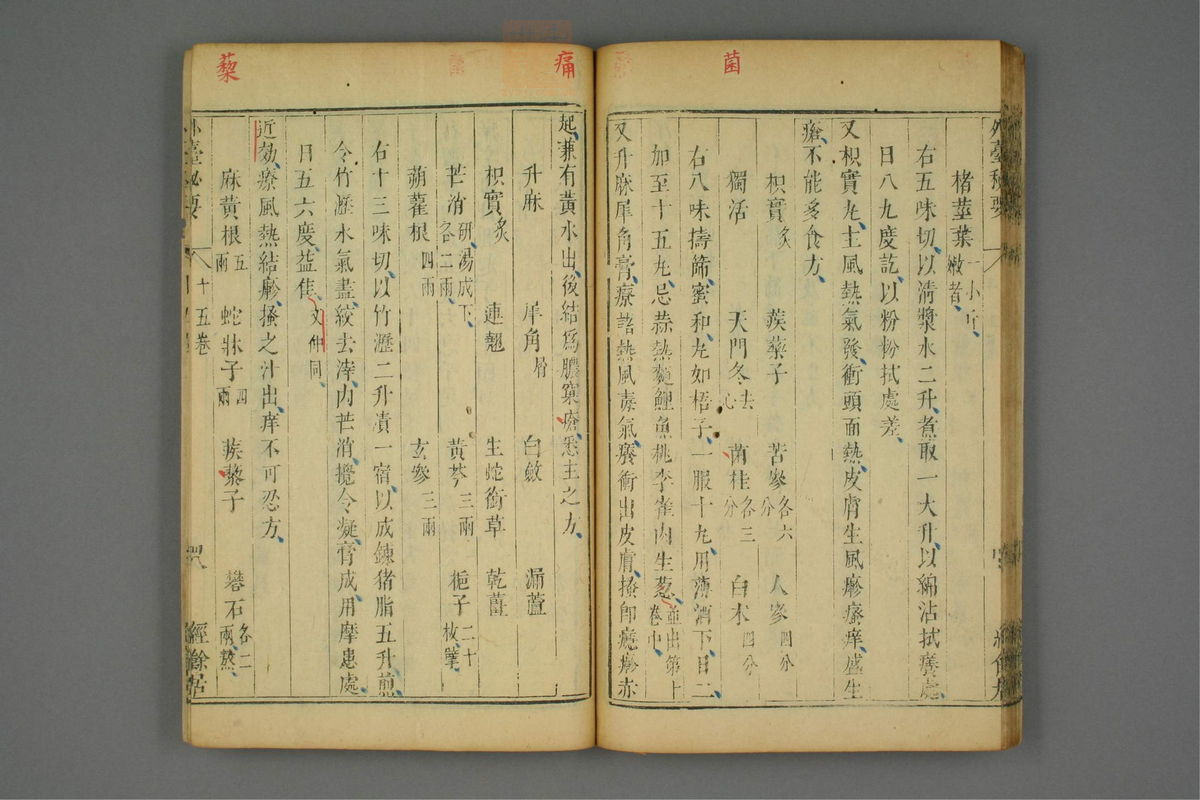 菌
楮莖葉一小斤嫩者
右五味切以清漿水二升煮取一大升以綿沾拭癢處
日八九度訖以粉粉拭處差
又枳實丸主風熱氣發衝頭面熱皮膚生風疹瘙痒盛生
瘡不能多食方
枳實炙 蒺藜子 苦參各六分 人參四分
獨活 天門冬去心 菌桂各三分 白朮四分
右八味擣篩蜜和丸如梧子一服十丸用薄酒下日二
加至十五丸忌蒜熱麵鯉魚桃李雀肉生葱並出第十卷中
又升麻犀角膏療諸熱風毒氣癢衝出皮膚搔即癮疹赤
痛
起兼有黃水出後結爲膿窠瘡悉主之方
升麻 犀角屑 白斂 漏蘆
枳實炙 連翹 生蛇銜草 乾薑
芒消研湯成下各二兩 黃芩三兩 梔子二十枚擘
蒴藋根四兩 玄參三兩
右十三味切以竹瀝二升漬一宿以成鍊猪脂五升煎
令竹瀝水氣盡絞去滓內芒消攪令凝膏成用摩患處
日五六度益佳文仲同
近効療風熱結疹搔之汁出痒不可忍方
藜
麻黃根五兩 蛇牀子四兩 蒺藜子 礬石各二兩熬
外臺秘要
十五卷
經餘居